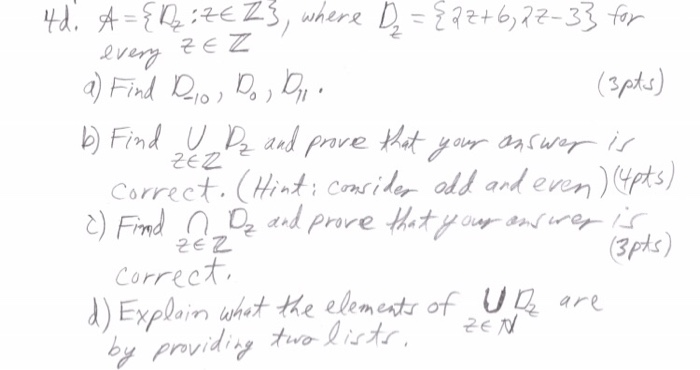 4d. A = {D_z : z ∈ ℤ}, where D_z = {2z+6, 2z-3} for
every z ∈ ℤ
a) Find D_-10, D_0, D_11. (3pts)
b) Find ∪_{z∈ℤ} D_z and prove that your answer is
correct. (Hint: consider odd and even) (4pts)
c) Find ∩_{z∈ℤ} D_z and prove that your answer is
(3pts)
correct.
d) Explain what the elements of ∪_{z∈ℕ} D_z are
by providing two lists.